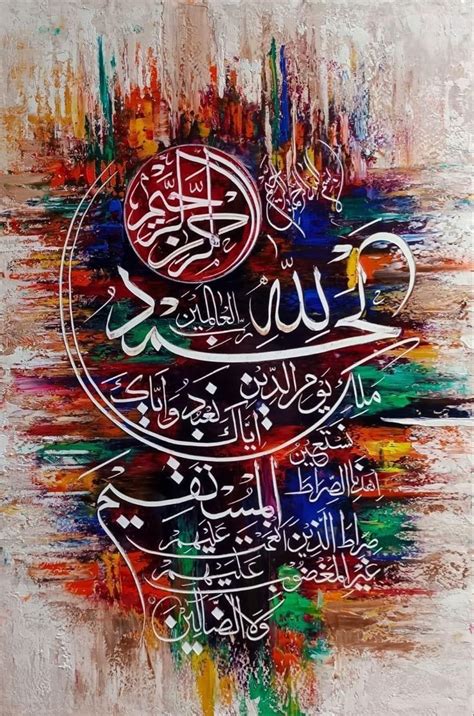 بسم الله الرحمن الرحيم
الحمد لله
رب العالمين
ملك يوم الدين
اياك نعبد واياك
نستعين
اهدنا الصراط
المستقيم
صراط الذين انعمت عليهم
غير المغضوب عليهم
ولا الضالين